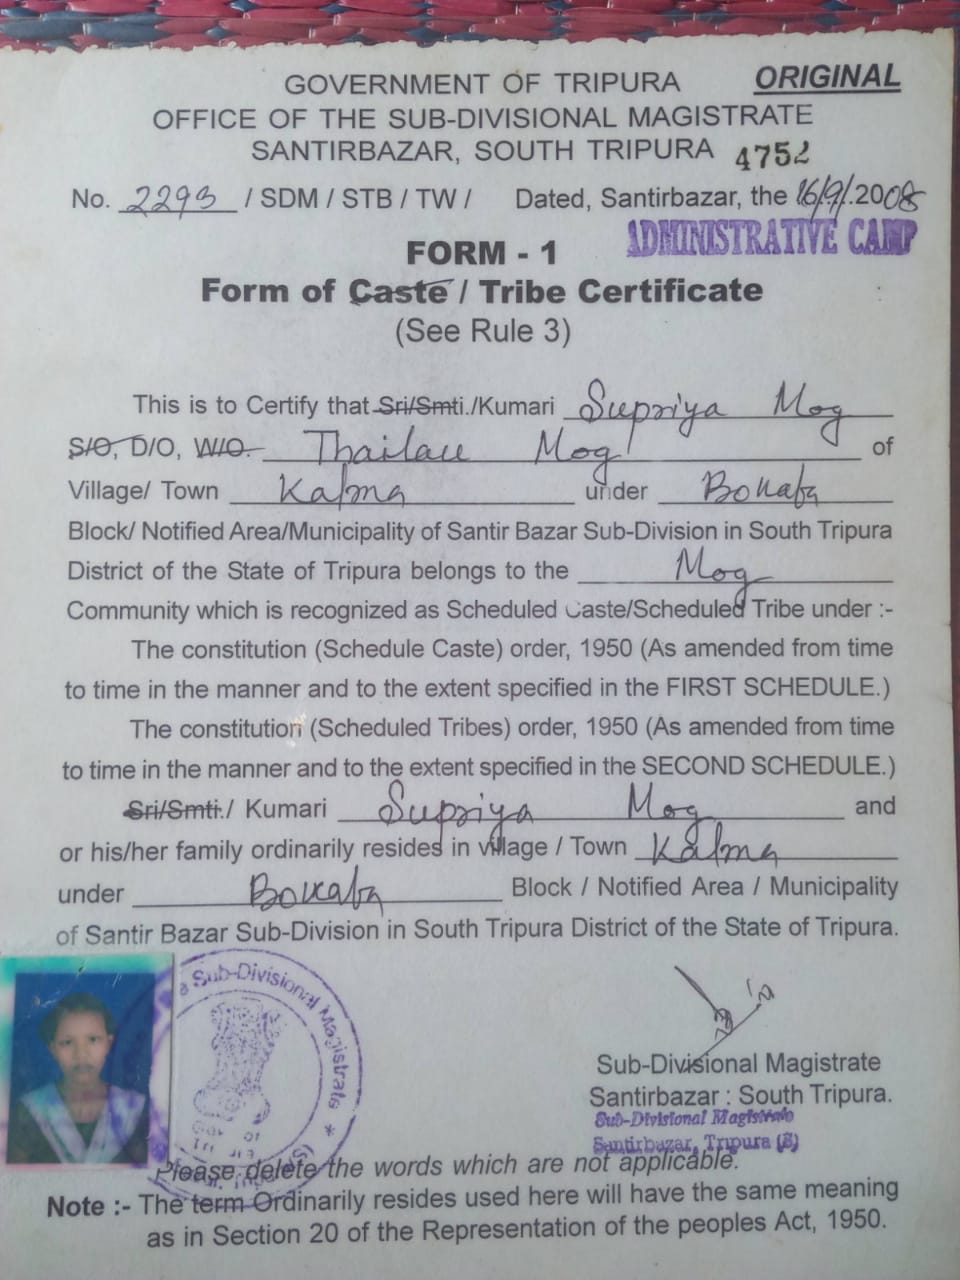 ORIGINAL
GOVERNMENT OF TRIPURA
OFFICE OF THE SUB-DIVISIONAL MAGISTRATE
SANTIRBAZAR, SOUTH TRIPURA 4752
No. 2293 / SDM / STB / TW / Dated, Santirbazar, the 16/9/.2008
ADMINISTRATIVE CAMP
FORM - 1
Form of Caste / Tribe Certificate
(See Rule 3)
This is to Certify that Sri/Smti./Kumari Supriya Mog
S/O, D/O, W/O. Thailau Mog of
Village/ Town Kalma under Bokafa
Block/ Notified Area/Municipality of Santir Bazar Sub-Division in South Tripura
District of the State of Tripura belongs to the Mog
Community which is recognized as Scheduled Caste/Scheduled Tribe under :-
The constitution (Schedule Caste) order, 1950 (As amended from time
to time in the manner and to the extent specified in the FIRST SCHEDULE.)
The constitution (Scheduled Tribes) order, 1950 (As amended from time
to time in the manner and to the extent specified in the SECOND SCHEDULE.)
Sri/Smti./ Kumari Supriya Mog and
or his/her family ordinarily resides in village / Town Kalma
under Bokafa Block / Notified Area / Municipality
of Santir Bazar Sub-Division in South Tripura District of the State of Tripura.
Sub-Divisional Magistrate
Sub-Divisional Magistrate
Santirbazar : South Tripura.
Sub-Divisional Magistrate
Santirbazar, Tripura (S)
Please delete the words which are not applicable.
Note :- The term Ordinarily resides used here will have the same meaning
as in Section 20 of the Representation of the peoples Act, 1950.